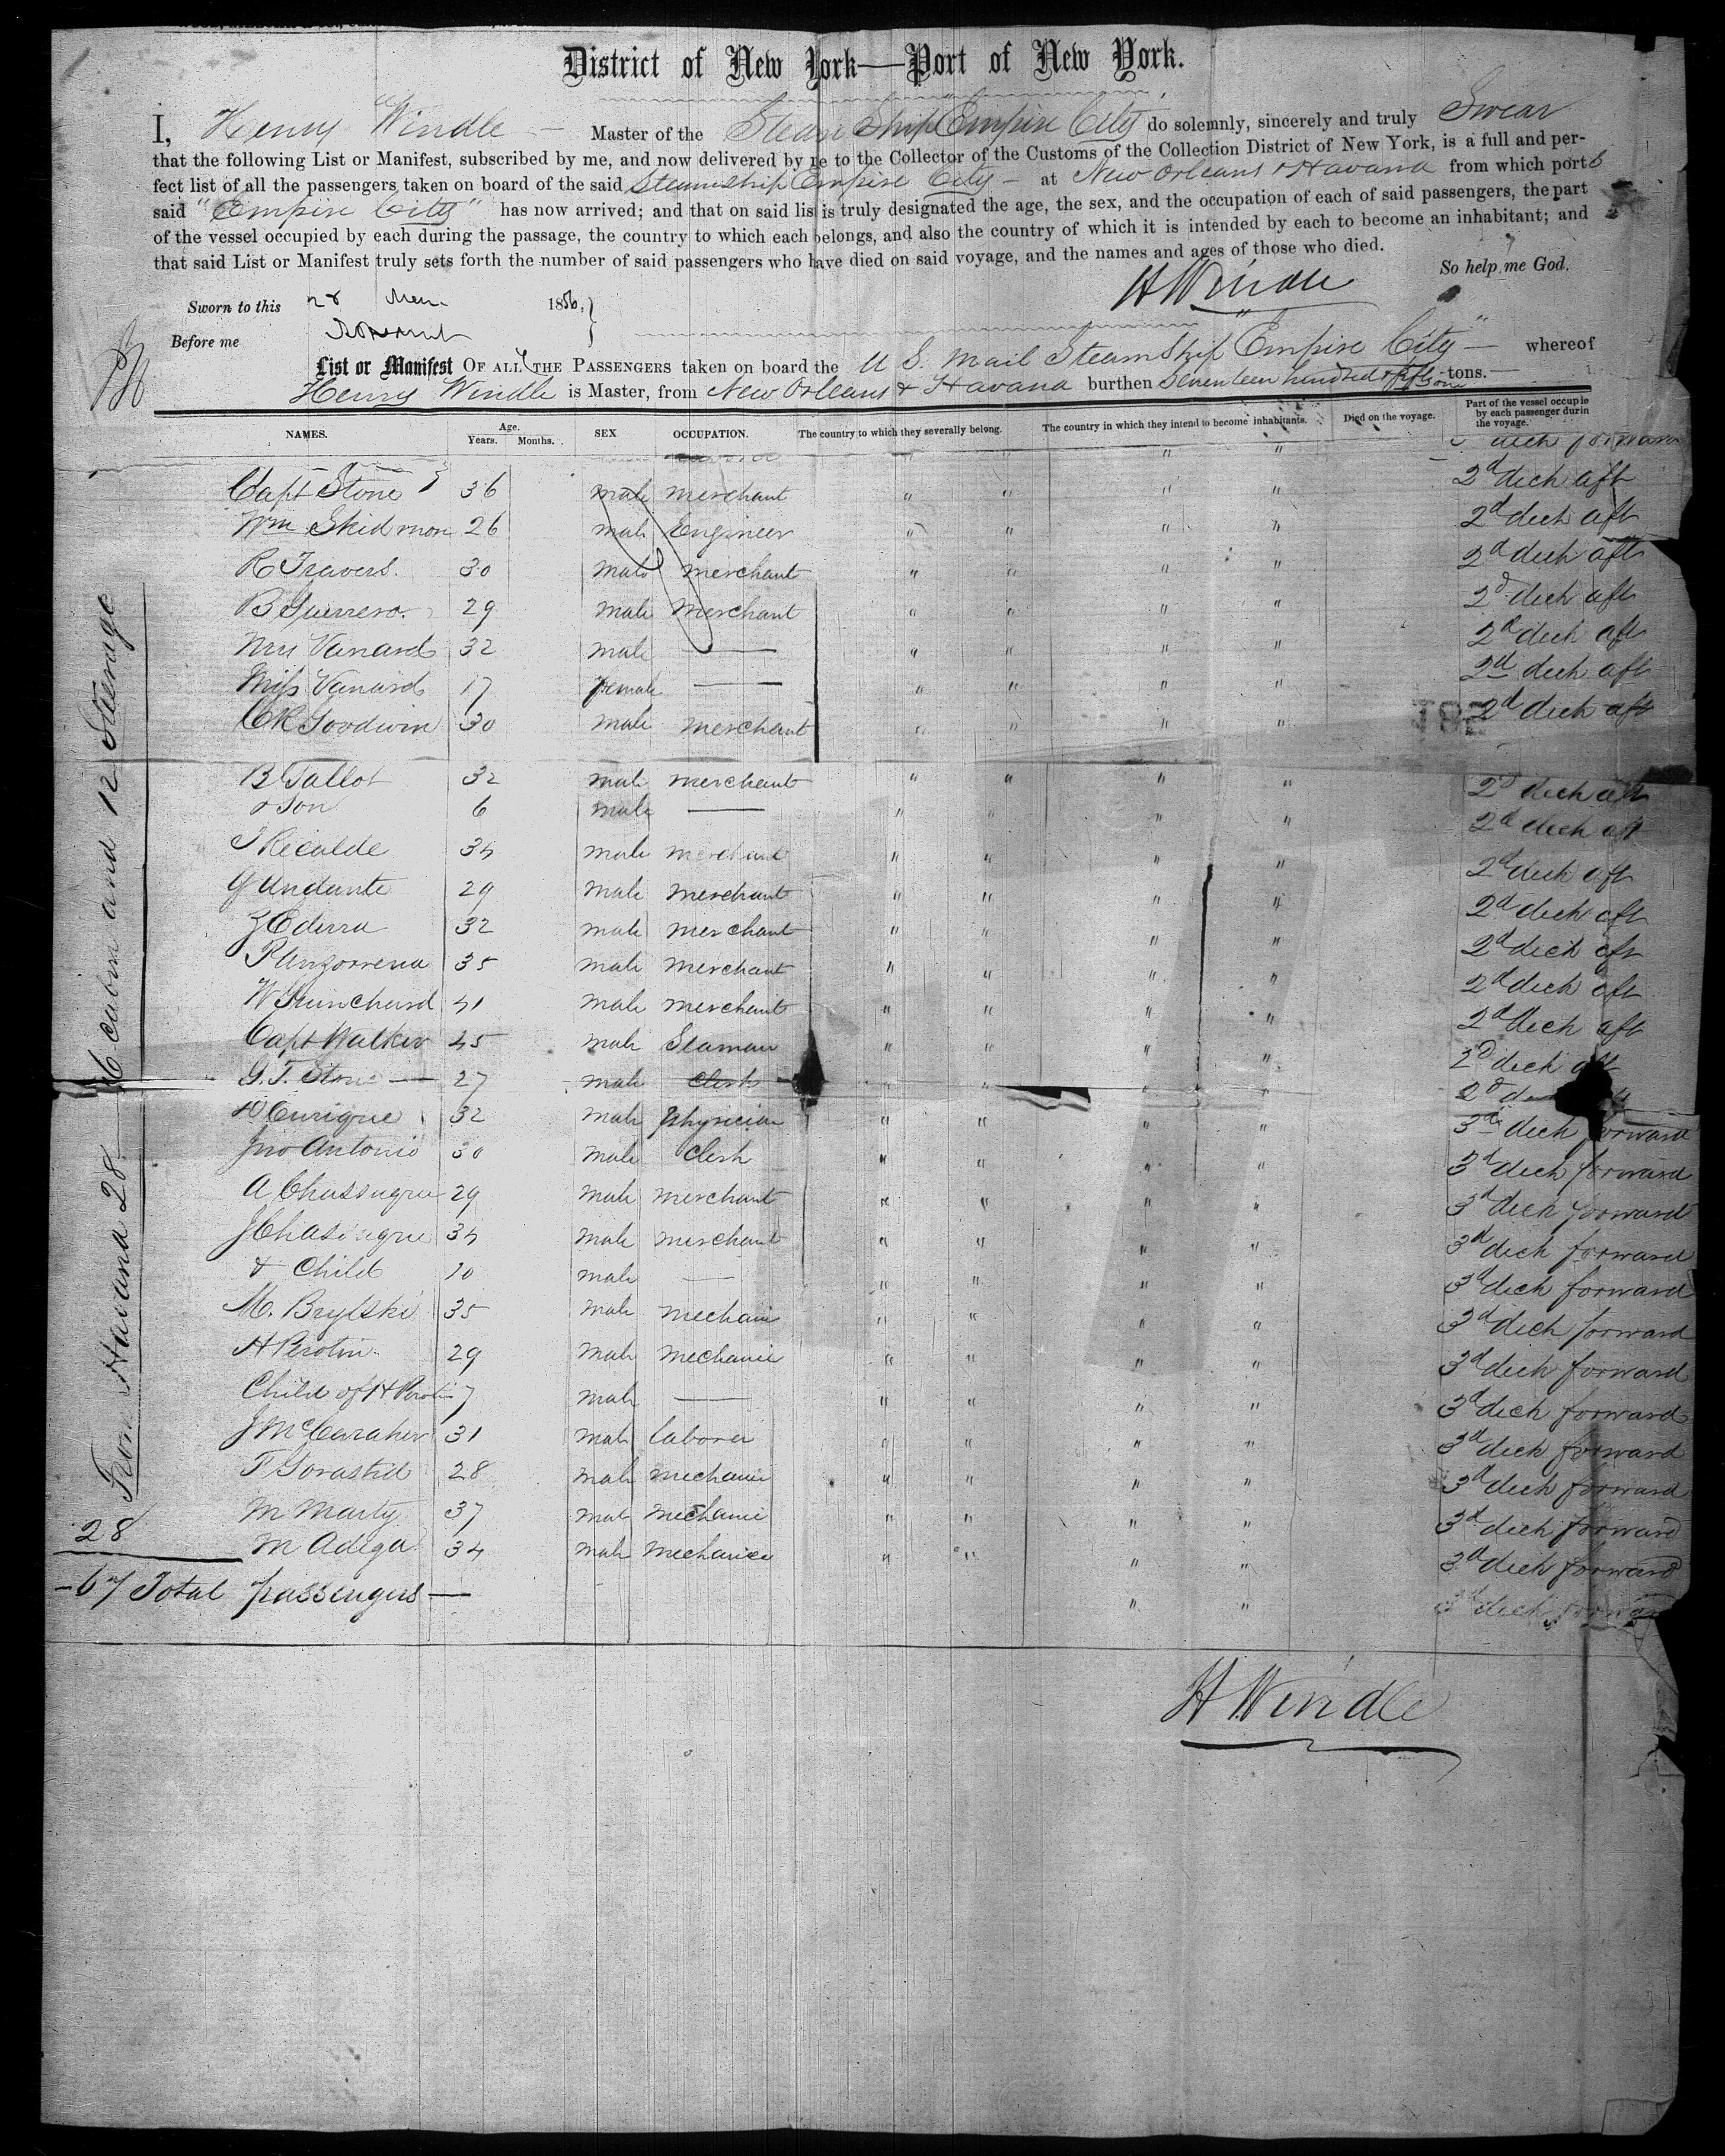 District of New York—Port of New York.
I, Henry Windle — Master of the Steam Ship Empire City do solemnly, sincerely and truly Swear
that the following List or Manifest, subscribed by me, and now delivered by me to the Collector of the Customs of the Collection District of New York, is a full and per-
fect list of all the passengers taken on board of the said Steamship Empire City — at New Orleans & Havana from which ports
said "Empire City" has now arrived; and that on said list is truly designated the age, the sex, and the occupation of each of said passengers, the part
of the vessel occupied by each during the passage, the country to which each belongs, and also the country of which it is intended by each to become an inhabitant; and
that said List or Manifest truly sets forth the number of said passengers who have died on said voyage, and the names and ages of those who died.
So help me God.
H Windle
Sworn to this 28 1856,
Before me
List or Manifest OF ALL THE PASSENGERS taken on board the U S. Mail SteamShip "Empire City" — whereof
Henry Windle is Master, from New Orleans & Havana burthen Seventeen hundred & fifty one tons.
NAMES. Age. Years. Months. SEX OCCUPATION. The country to which they severally belong. The country in which they intend to become inhabitants. Died on the voyage. Part of the vessel occupie by each passenger durin the voyage.
" " " " deck forward
Capt Stone 36 male merchant " " " " 2d deck aft
Wm Skidmore 26 male Engineer " " " " 2d deck aft
R Travers. 30 male merchant " " " " 2d deck aft
B Guerrero. 29 male merchant " " " " 2d deck aft
Mrs Vanard 32 male — " " " " 2d deck aft
Miss Vanard 17 Female — " " " " 2d deck aft
C R Goodwin 30 male merchant " " " " 2d deck aft
B Tallot 32 male merchant " " " " 2d deck aft
& Son 6 male — " " " 2d deck aft
J Recalde 34 male merchant " " " " 2d deck aft
G Undante 29 male merchant " " " " 2d deck aft
Z Ederra 32 male merchant " " " " 2d deck aft
P Anzorrena 35 male merchant " " " " 2d deck aft
W Guinchard 41 male merchant " " " " 2d deck aft
Capt Walker 45 male Seaman " " " " 2d deck aft
G. T. Stone — 27 male Clerk " " " " 2d
D Enrique 32 male physician " " " " 3d deck forward
Jno Antonio 30 male Clerk " " " " 3d deck forward
A Chassugne 29 male merchant " " " " 3d deck forward
J Chasingne 34 male merchant " " " " 3d deck forward
& Child 10 male — " " " " 3d deck forward
M. Brylski 35 male mechanic " " " " 3d deck forward
H Perotin 29 male mechanic " " " " 3d deck forward
Child of H Perotin 7 male — " " " " 3d deck forward
J McCaraher 31 male laborer " " " " 3d deck forward
T Gorastid 28 male mechanic " " " " 3d deck forward
M Marty 37 male mechanic " " " " 3d deck forward
M Adega 34 male mechanic " " " " 3d deck forward
" " deck forward
From Havana 28 16 cabin and 12 Steerage
28
—67 Total passengers —
H Windle